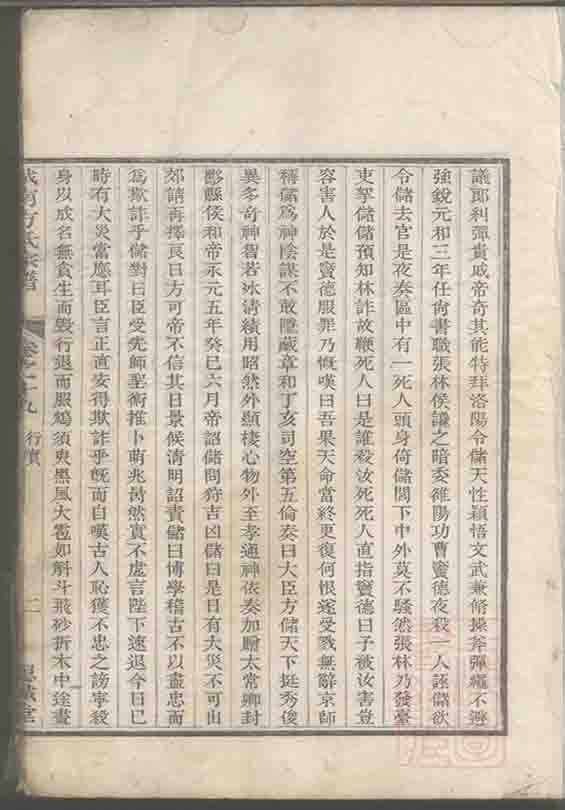 議郎糾彈貴戚帝奇其能特拜洛陽令儲天性穎悟文武兼脩操斧彈繩不避
強銳元和三年任尙書職張林侯謙之暗委雒陽功曹竇德夜殺一人誣儲欲
令儲去官是夜奏區中有一死人頭身倚儲閣下中外莫不騷然張林乃發臺
吏拏儲儲預知林詐故鞭死人曰是誰殺汝死死人直指竇德曰子被汝害豈
容害人於是竇德服罪乃慨嘆曰吾果天命當終更復何恨遂受戮無辭京師
稱儲爲神陰謀不敢隱藏章和丁亥司空第五倫奏曰大臣方儲天下挺秀俊
異多奇神智若冰清績用昭然外顯棲心物外至孝通神依奏加贈太常卿封
黟縣侯和帝永元五年癸巳六月帝詔儲問狩吉凶儲曰是日有大災不可出
郊請再擇良日方可帝不信其日景候淸明詔責儲曰博學稽古不以盡忠而
爲欺詐乎儲對曰臣受先師聖術推卜萌兆昺然實不虛言陛下速退今日巳
時有大災當應耳臣言正直安得欺詐乎旣而自嘆古人恥獲不忠之謗寧殺
身以成名無貪生而毀行退而服鴆須臾黑風大雹如斛斗飛砂折木中途晝
方氏宗譜
卷之十九
行實
二